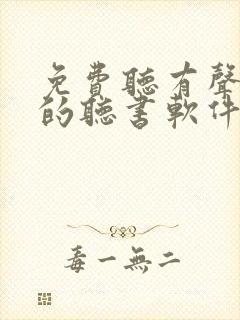 免費聽有聲
的聽書軟件
毒一無二